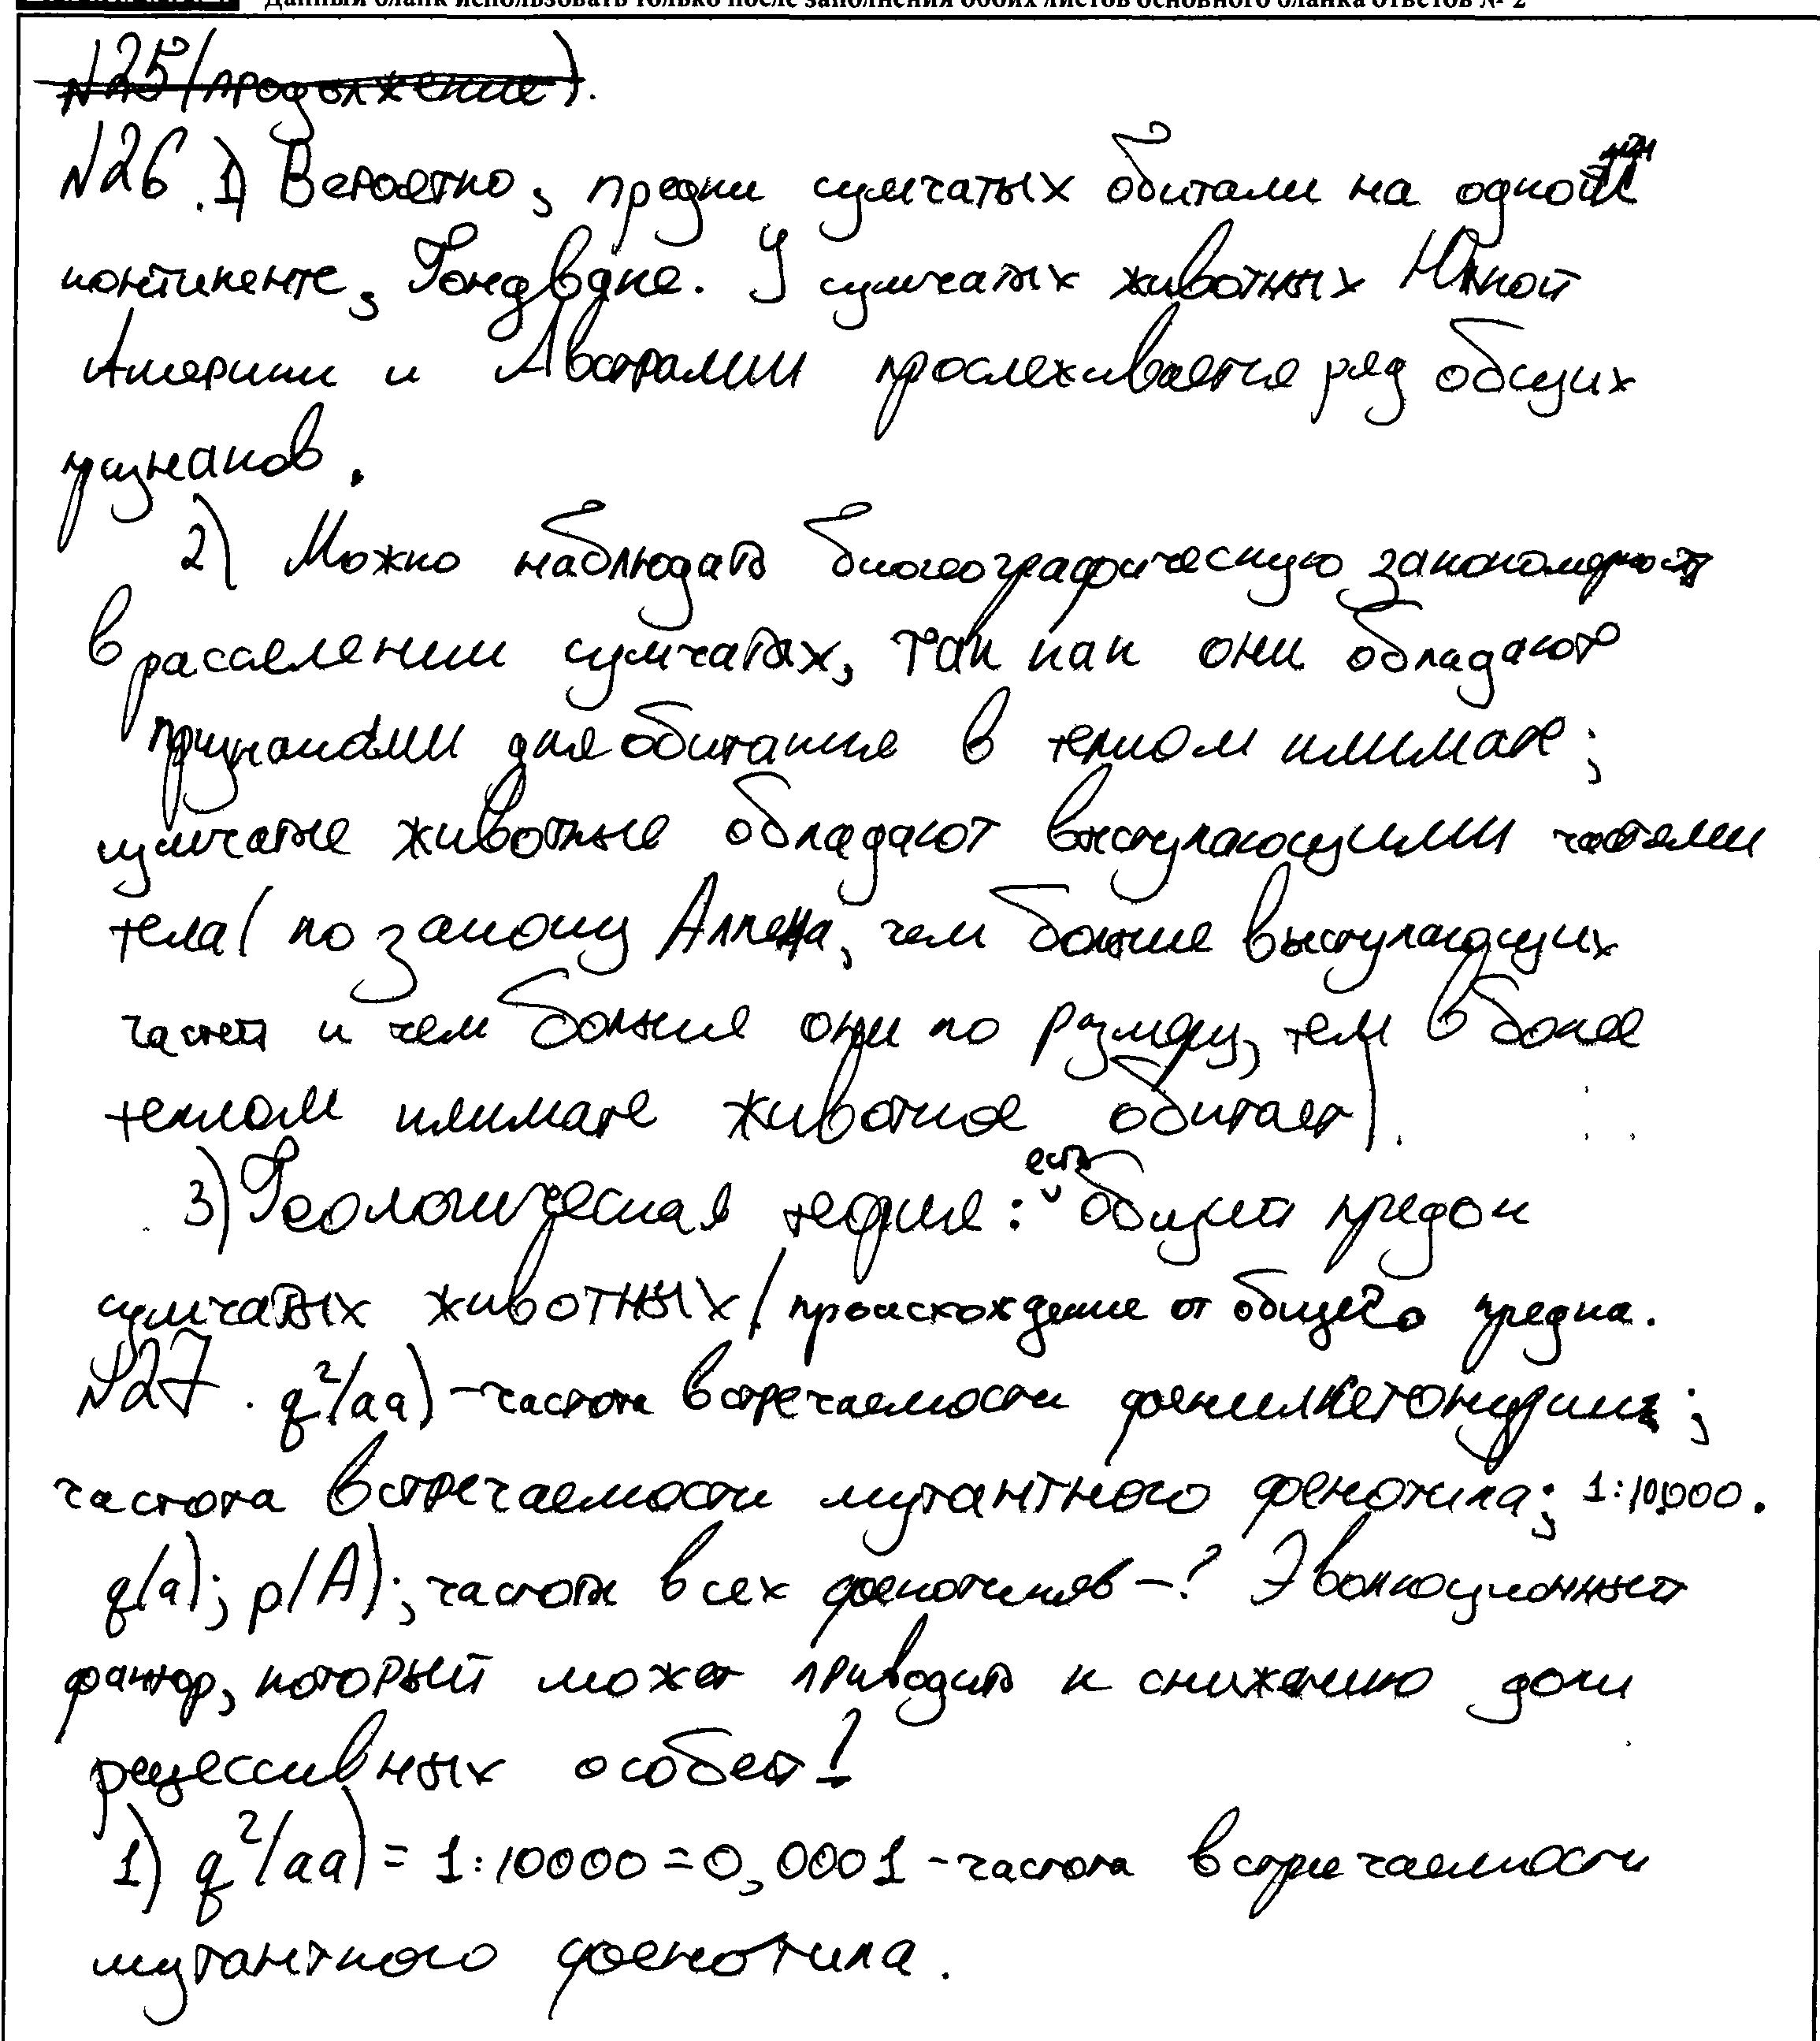 Данный бланк использовать только после заполнения обоих листов основного бланка ответов № 2
№25 (продолжение).
№26. 1) Вероятно, предки сумчатых обитали на одном
континенте, Гондване. У сумчатых животных Южной
Америки и Австралии прослеживается ряд общих
признаков.
2) Можно наблюдать биогеографическую закономерность
в расселении сумчатых, так как они обладают
признаками для обитания в теплом климате;
сумчатые животные обладают выступающими частями
тела (по закону Аллена, чем больше выступающих
частей и чем больше они по размеру, тем в более
теплом климате животное обитает).
3) Геологическая теория: есть общий предок
сумчатых животных / происхождение от общего предка.
№27. q²(aa) - частота встречаемости фенилкетонурии;
частота встречаемости мутантного фенотипа; 1:10000.
q(a); p(A); частоты всех фенотипов - ? Эволюционный
фактор, который может приводить к снижению доли
рецессивных особей?
1) q²(aa) = 1:10000 = 0,0001 - частота встречаемости
мутантного фенотипа.